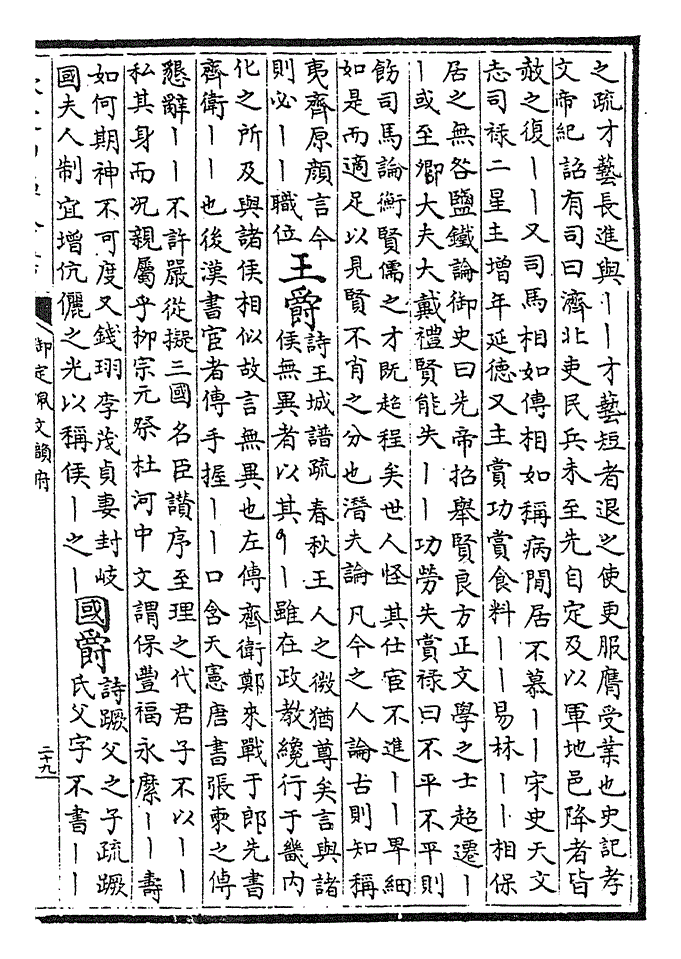 之疏才藝長進與丨丨才藝短者退之使更服膺受業也史記孝
文帝紀詔有司曰濟北吏民兵未至先自定及以軍地邑降者皆
赦之復丨丨又司馬相如傳相如稱病閒居不慕丨丨宋史天文
志司禄二星主增年延德又主賞功賞食料丨丨易林丨丨相保
居之無咎鹽鐵論御史曰先帝招舉賢良方正文學之士超遷丨
丨或至鄉大夫大戴禮賢能失丨丨功勞失賞禄曰不平不平則
飭司馬論衡賢儒之才既超程矣世人怪其仕官不進丨丨畀細
如是而適足以見賢不肖之分也潛夫論凡今之人論古則知稱
夷齊原顔言今
則必丨丨職位
王爵
詩王城譜疏春秋王人之微猶尊矣言與諸
侯無異者以其丨丨雖在政教纔行于畿内
化之所及與諸侯相似故言無異也左傳齊衛鄭來戰于郎先書
齊衛丨丨也後漢書宦者傳手握丨丨口含天憲唐書張柬之傳
懇辭丨丨不許嚴從擬三國名臣讃序至理之代君子不以丨丨
私其身而况親屬乎柳宗元祭杜河中文謂保豐福永縻丨丨壽
如何期神不可度又錢珝李茂貞妻封岐
國夫人制宜增伉儷之光以稱侯丨之丨
國爵
詩蹶父之子疏蹶
氏父字不書丨丨
御定佩文韻府
二十九